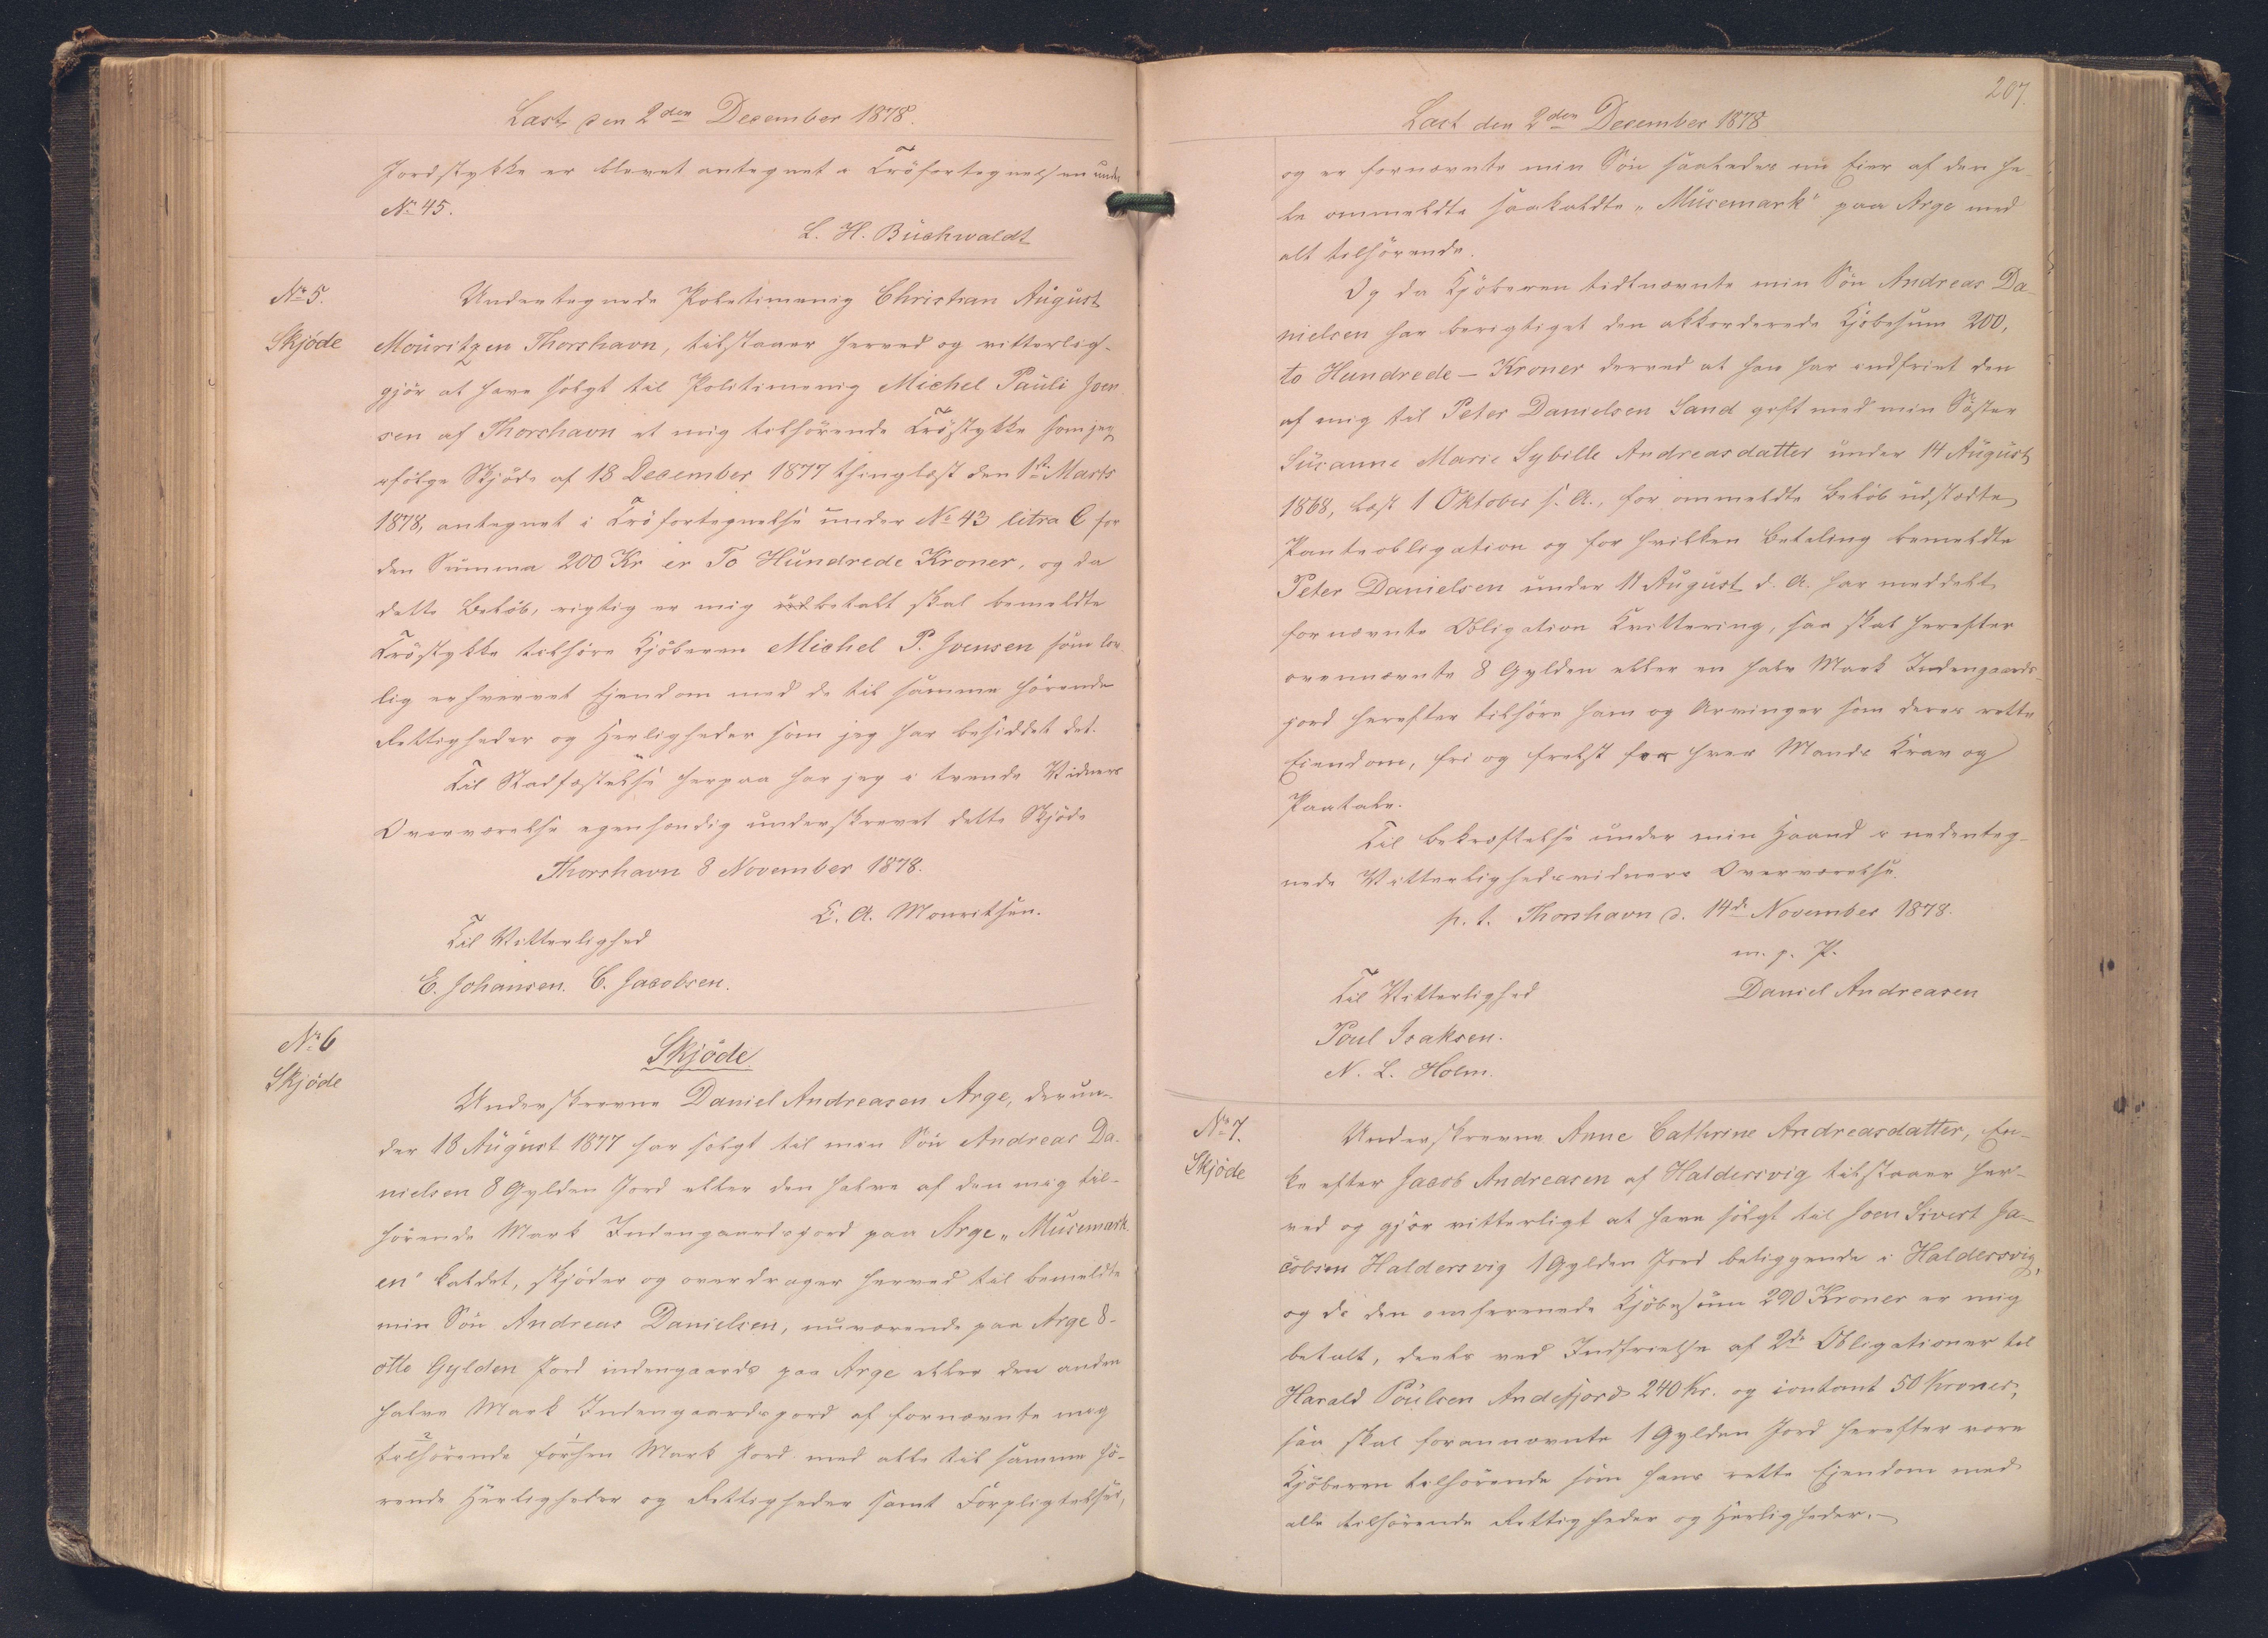 Læst den 2den December 1878.
Jordstykke er blevet antegnet i Tröfortegnelsen under
No 45.
L. H. Buchwaldt
No 5.
Skjöde
Undertegnede Politimenig Christian August
Mouritzen Thorshavn, tilstaaer herved og vitterlig-
gjör at have solgt til Politimenig Michel Pauli Joen
sen af Thorshavn et mig tilhörende Tröstykke som jeg
ifölge Skjöde af 18 December 1877 thinglæst den 1ste Marts
1878, antegnet i Tröfortegnelse under No 43 litra C for
den Summa 200 Kr er To Hundrede Kroner, og da
dette Belöb, rigtig er mig udbetalt skal bemeldte
Tröstykke tilhöre Kjöberen Michel P. Joensen som lov
lig erhvervet Ejendom med de til samme hörende
Rettigheder og Herligheder som jeg har besiddet det.
Til Stadfæstelse herpaa har jeg i tvende Vidners
Overværelse egenhændig underskrevet dette Skjöde
Thorshavn 8 November 1878.
C. A. Mouritsen.
Til Vitterlighed
E. Johansen. C. Jacobsen.
No 6
Skjöde
Skjöde.
Underskrevne Daniel Andreasen Arge, der un-
der 18 August 1877 har solgt til min Sön Andreas Da-
nielsen 8 Gylden Jord eller den halve af den mig til-
hörende Mark Indengaardsjord paa Arge „Musemark
en" kaldet, skjöder og overdrager herved til bemeldte
min Sön Andreas Danielsen, nuværende paa Arge 8-
otte Gylden Jord indengaards paa Arge eller den anden
halve Mark Indengaardsjord af fornævnte mig
2 1
tilhörende forhen Mark Jord med alle til samme hö-
rende Herligheder og Rettigheder samt Forpligtelser,
207.
Læst den 2den December 1878
og er fornævnte min Sön saaledes nu Eier af den he-
le ommeldte saakaldte „Musemark" paa Arge med
alt tilhörende.
Og da Kjöberen tidtnævnte min Sön Andreas Da-
nielsen har berigtiget den akkorderede Kjöbesum 200,
to Hundrede – Kroner derved at han har indfriet den
af mig til Peter Danielsen Sand gift med min Söster
Susanne Marie Sybille Andreasdatter under 14 August
1868, læst 1 Oktober s. A., for ommeldte Belöb udstædte
Panteobligation og for hvilken Betaling bemeldte
Peter Danielsen under 11 August d. A. har meddelt
fornævnte Obligation Kvittering, saa skal herefter
ovennævnte 8 Gylden eller en halv Mark Indengaards-
jord herefter tilhöre ham og Arvinger som deres rette
Eiendom, fri og frelst for hver Mands Krav og
Paatale.
Til Bekræftelse under min Haand i nedenteg-
nede Vitterlighedsvidners Overværelse.
p. t. Thorshavn d. 14de November 1878.
m. f. P.
Til Vitterlighed
Daniel Andreasen
Poul Isaksen.
N. L. Holm.
No 7.
Skjöde
Underskrevne Anne Cathrine Andreasdatter, En-
ke efter Jacob Andreasen af Haldersvig tilstaaer her-
ved og gjör vitterligt at have solgt til Joen Sivert Ja-
cobsen Haldersvig 1 Gylden Jord beliggende i Haldersvig,
og da den omforenede Kjöbesum 290 Kroner er mig
betalt, deels ved Indfrielse af 2de Obligationer til
Harald Poulsen Andefjord 240 Kr. og contant 50 Kroner,
saa skal forannævnte 1 Gylden Jord herefter være
Kjöberen tilhörende som hans rette Ejendom med
alle tilhörende Rettigheder og Herligheder. –